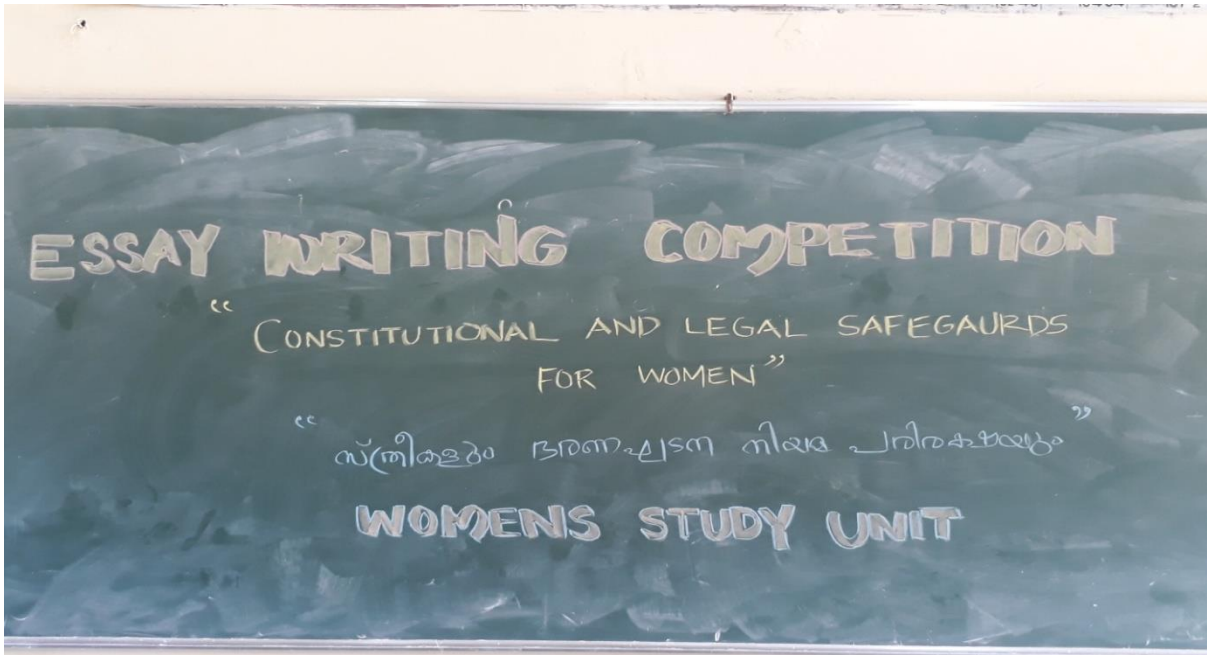 ESSAY WRITING COMPETITION
“ CONSTITUTIONAL AND LEGAL SAFEGAURDS
FOR WOMEN”
“ സ്ത്രീകളും ഭരണഘടന നിയമ പരിരക്ഷയും ”
WOMENS STUDY UNIT